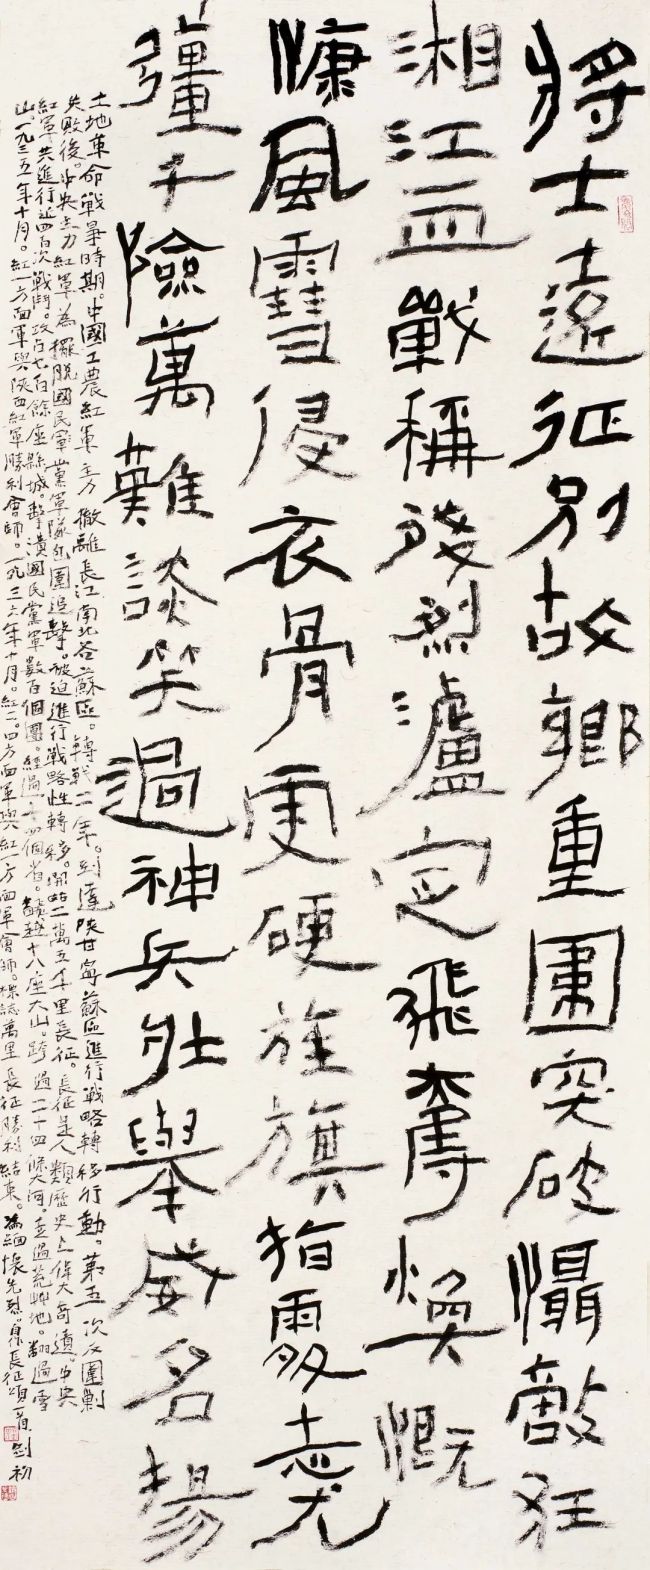 將士遠征別故鄉重圍突破懾敵狂
湘江血戰稱殘烈瀘定飛奪煥慨
慷風雪侵衣骨更硬旌旗指處志尤
彊千險萬難談笑過神兵壯舉威名揚
土地革命戰爭時期。中國工農紅軍主力撤離長江南北各蘇區。轉戰二年。到達陝甘寧蘇區進行戰略轉移行動。第五次反圍剿
失敗後。中央主力紅軍為擺脫國民黨軍隊包圍追擊。被迫進行戰略性轉移。開始二萬五千里長征。長征是人類歷史上偉大奇蹟。中央
紅軍共進行近四百次戰鬥。攻占七百餘座縣城。擊潰國民黨軍數百個團。經過十四個省。翻越十八座大山。跨過二十四條大河。走過荒艸地。翻過雪
山。一九三五年十月。紅一方面軍與陝西紅軍勝利會師。一九三六年十月。紅二。四方面軍與紅一方面軍會師。標誌萬里長征勝利結束。為緬懷先烈。長征頌一首 劉初